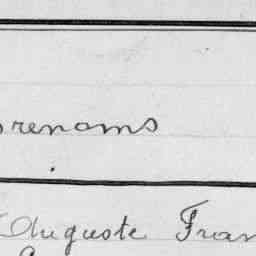 prenoms
Auguste Fran